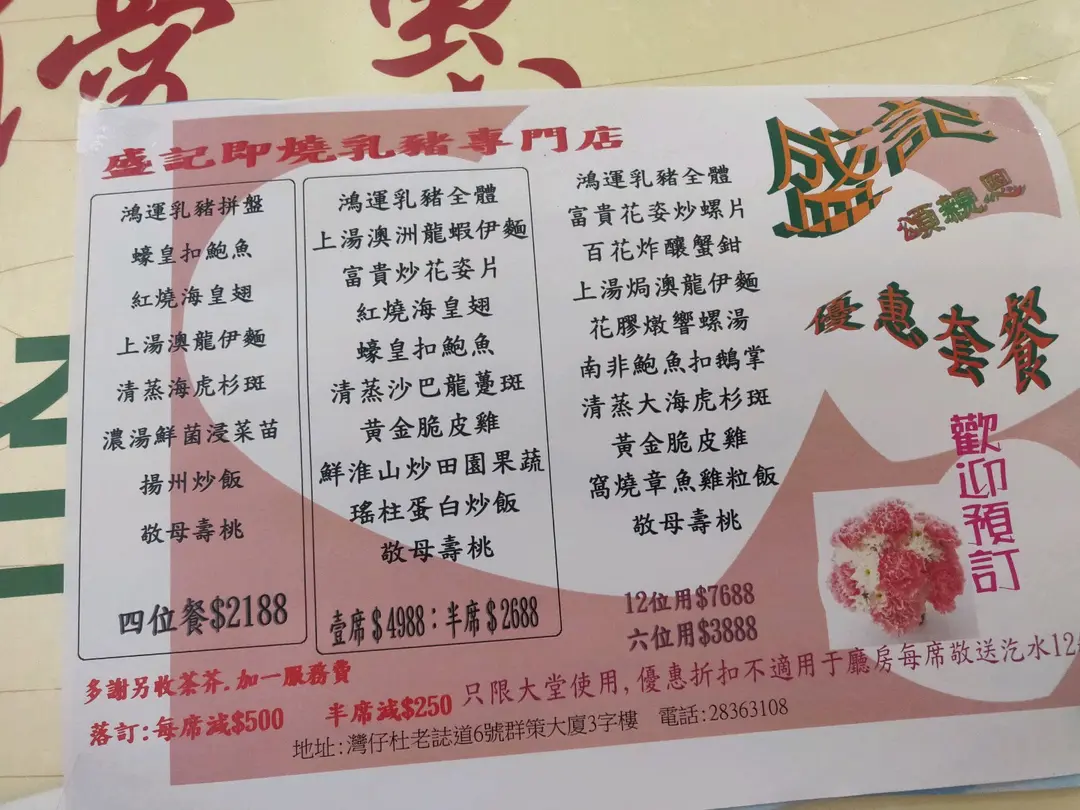 盛記即燒乳豬專門店
盛記
頌親恩
優惠套餐
歡迎預訂
鴻運乳豬拼盤
蠔皇扣鮑魚
紅燒海皇翅
上湯澳龍伊麵
清蒸海虎杉斑
濃湯鮮菌浸菜苗
揚州炒飯
敬母壽桃
四位餐$2188
鴻運乳豬全體
上湯澳洲龍蝦伊麵
富貴炒花姿片
紅燒海皇翅
蠔皇扣鮑魚
清蒸沙巴龍躉斑
黃金脆皮雞
鮮淮山炒田園果蔬
瑤柱蛋白炒飯
敬母壽桃
壹席$4988：半席$2688
鴻運乳豬全體
富貴花姿炒螺片
百花炸釀蟹鉗
上湯焗澳龍伊麵
花膠燉響螺湯
南非鮑魚扣鵝掌
清蒸大海虎杉斑
黃金脆皮雞
窩燒章魚雞粒飯
敬母壽桃
12位用$7688
六位用$3888
多謝另收茶芥.加一服務費
落訂:每席減$500 半席減$250 只限大堂使用,優惠折扣不適用于廳房每席敬送汽水12
地址:灣仔杜老誌道6號群策大廈3字樓 電話:28363108